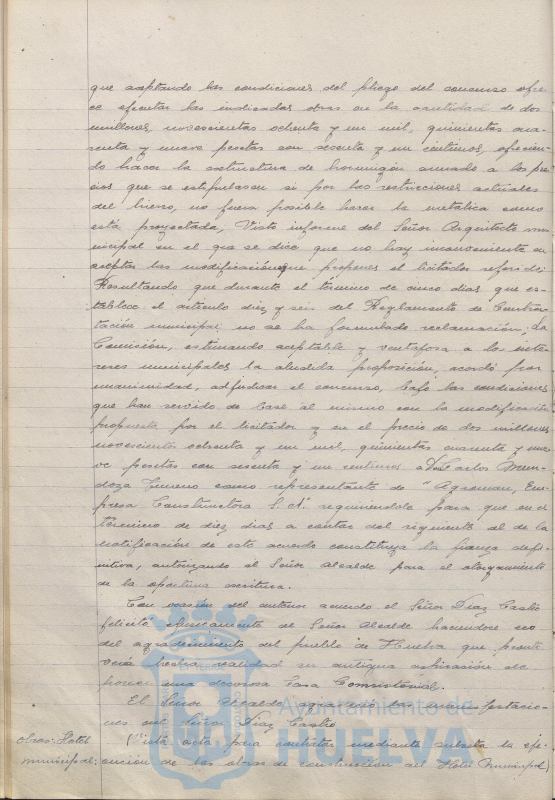 que aceptando las condiciones del pliego del concurso ofre-
ce ejecutar las indicadas obras en la cantidad de dos
millones, novecientas ochenta y un mil, quinientas cua-
renta y nueve pesetas con sesenta y un centimos, ofrecien-
do hacer la estructura de hormigón armado a los pre-
cios que se estipulasen si por las restricciones actuales
del hierro, no fuera posible hacer la metalica como
está proyectada, Visto informe del Señor Arquitecto mu-
nicipal en el que se dice que no hay inconveniente en
aceptar las modificaciones que propone el licitador referido;
Resultando que durante el término de cinco dias que es-
tablece el articulo diez y seis del Reglamento de Contra-
tación municipal, no se ha formulado reclamación; La
Comisión, estimando aceptable y ventajosa a los inte-
reses municipales la aludida proposición, acordó por
unanimidad, adjudicar el concurso, bajo las condiciones
que han servido de base al mismo con la modificación
propuesta por el licitador y en el precio de dos millones
novecientas ochenta y un mil, quinientas cuarenta y nue-
ve pesetas con sesenta y un centimos a D. Carlos Men-
doza Gimeno como representante de "Agroman, Em-
presa Constructora S.A." requiriendole para que en el
término de diez dias a contar del siguiente al de la
notificación de este acuerdo constituya la fianza defi-
nitiva, autorizando al Señor Alcalde para el otorgamiento
de la oportuna escritura.
Con ocasión del anterior acuerdo el Señor Diaz Castro
felicitó efusivamente al Señor Alcalde haciendose eco
del agradecimiento del pueblo de Huelva que pronto
verá hecha realidad su antigua aspiración de
poseer una decorosa Casa Consistorial.
El Señor Alcalde agradeció las manifestacio-
nes del Señor Diaz Castro
Obras: Hotel Vista acta para contratar mediante subasta la eje-
municipal: cución de las obras de construcción del Hotel Municipal,
Ayuntamiento de
HUELVA